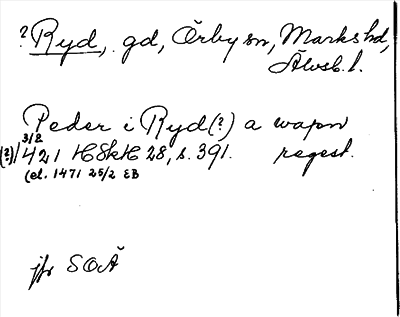 ? Ryd, gd, Örby sn, Marks hd,
Älvsb. l.
Peder i Ryd (?) a wapn
3/2
(?)/1421 HSkH 28, s. 391. regest.
(el. 1471 25/2 EB
jfr SOÄ